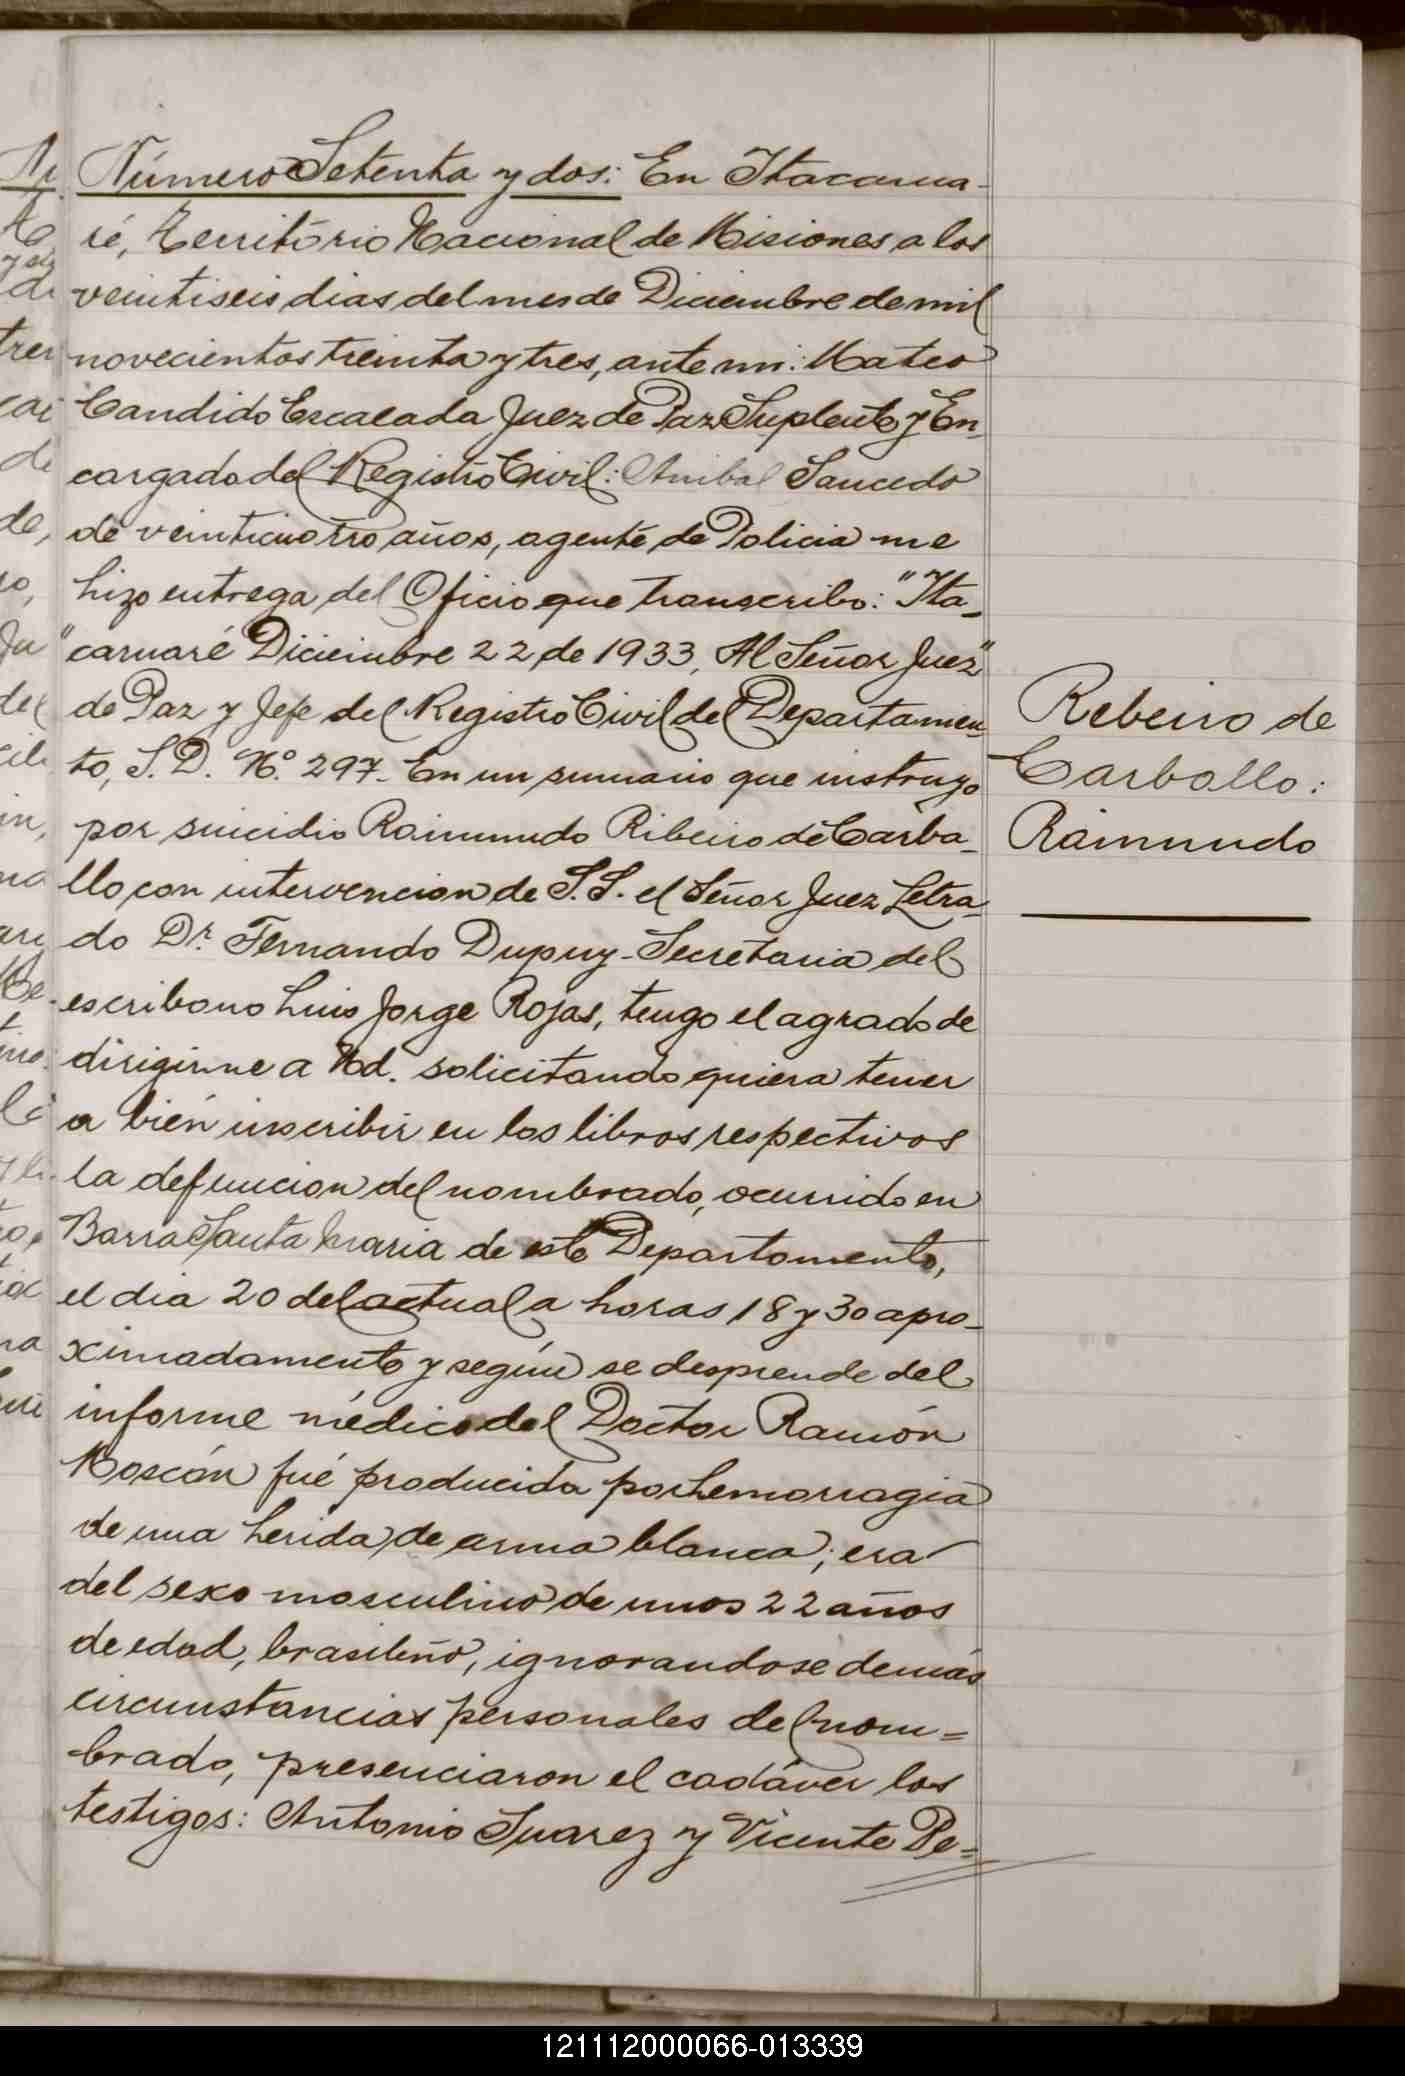 Número Setenta y dos: En Itacarua-
ré, Territorio Nacional de Misiones a los
veintiseis dias del mes de Diciembre de mil
novecientos treinta y tres, ante mi: Mateo
Candido Escalada Juez de Paz Suplente y En-
cargado del Registro Civil: Anibal Saucedo
de veinticuatro años, agente de Policia me
hizo entrega del Oficio que transcribo: "Ita-
"caruaré Diciembre 22 de 1933, Al Señor Juez"
de Paz y Jefe del Registro Civil del Departamen-
to, S. D. Nº. 297- En un sumario que instruyo
por suicidio Raimundo Ribeiro de Carba-
llo con intervencion de S. S. el Señor Juez Letra-
do Dr. Fernando Dupuy - Secretaria del
escribano Luis Jorge Rojas, tengo el agrado de
dirigirme a Ud. solicitando quiera tener
a bién inscribir en los libros respectivos
la defuncion del nombrado, ocurrido en
Barra Santa Maria de este Departamento,
el dia 20 del actual a horas 18 y 30 apro-
ximadamente y según se desprende del
informe médico del Doctor Ramón
fué producida por hemorragia
de una herida de arma blanca; era
del sexo masculino de unos 22 años
de edad, brasileño, ignorandose demás
circunstancias personales del nom=
brado, presenciaron el cadáver los
testigos: Antonio Suarez y Vicente Pe=
Rebeiro de
Carballo:
Raimundo
121112000066-013339